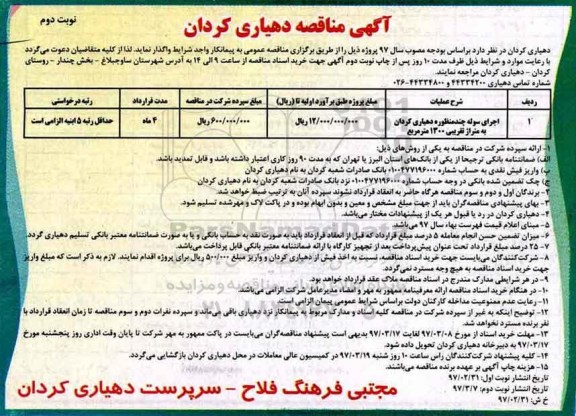 نوبت دوم
آگهی مناقصه دهیاری کردان
دهیاری کردان در نظر دارد براساس بودجه مصوب سال ۹۷ پروژه ذیل را از طریق برگزاری مناقصه عمومی به پیمانکار واجد شرایط واگذار نماید. لذا از کلیه متقاضیان دعوت می‌گردد
با رعایت موارد و شرایط ذیل ظرف مدت ۱۰ روز پس از چاپ نوبت دوم آگهی جهت خرید اسناد مناقصه از ساعت ۹ الی ۱۴ به آدرس شهرستان ساوجبلاغ - بخش چندار - روستای
کردان - دهیاری کردان مراجعه نمایند.
شماره تماس دهیاری ۴۴۳۳۴۲۰۰ و ۴۴۳۳۴۸۰۰-۰۲۶
ردیف شرح عملیات مبلغ پروژه طبق برآورد اولیه تا (ریال) مبلغ سپرده شرکت در مناقصه مدت قرارداد رتبه درخواستی
۱ اجرای سوله چندمنظوره دهیاری کردان به متراژ تقریبی ۱۳۰۰ مترمربع ۱۲/۰۰۰/۰۰۰/۰۰۰ ریال ۶۰۰/۰۰۰/۰۰۰ ریال ۴ ماه حداقل رتبه ۵ ابنیه الزامی است
۱- ارائه سپرده شرکت در مناقصه به یکی از روش‌های ذیل:
الف) ضمانتنامه بانکی ترجیحا از یکی از بانک‌های استان البرز یا تهران که به مدت ۹۰ روز کاری اعتبار داشته باشد و قابل تمدید باشد.
ب) واریز فیش نقدی به حساب شماره ۰۱۰۰۴۷۷۱۹۶۰۰۰ بانک صادرات شعبه کردان به نام دهیاری کردان
ج) چک تضمین شده بانکی در وجه حساب شماره ۰۱۰۰۴۷۷۱۹۶۰۰۰ نزد بانک صادرات شعبه کردان به نام دهیاری کردان
۲- برندگان اول و دوم و سوم مناقصه هرگاه حاضر به انعقاد قرارداد نشوند سپرده آنان به ترتیب ضبط خواهد شد.
۳- بهای پیشنهادی مناقصه‌گران باید از جهت مبلغ مشخص و معین و بدون ابهام بوده و در پاکت لاک و مهرشده تسلیم شود.
۴- دهیاری کردان در رد یا قبول هر یک از پیشنهادات مختار می‌باشد.
۵- مبنای اعلام قیمت فهرست بهاء سال ۹۷ می‌باشد.
۶- میزان تضمین حسن انجام معامله ۵ درصد مبلغ قرارداد که قبل از انعقاد قرارداد باید به صورت نقد به حساب بانکی و یا به صورت ضمانتنامه معتبر بانکی تسلیم دهیاری گردد.
۷- ۲۵ درصد مبلغ قرارداد تحت عنوان پیش‌پرداخت بعد از تجهیز کارگاه با ارائه ضمانتنامه معتبر بانکی قابل پرداخت می‌باشد.
۸- شرکت‌کنندگان می‌بایست جهت خرید اسناد مناقصه، نسبت به اخذ فیش از دهیاری کردان و واریز مبلغ ۵۰۰/۰۰۰ ریال برای پروژه اقدام نمایند. لازم به ذکر است که مبلغ واریز
جهت خرید اسناد مناقصه به هیچ وجه مسترد نمی‌گردد.
۹- در هر شرایطی مدارک مندرج در اسناد مناقصه ملاک عقد قرارداد خواهد بود.
۱۰- در هنگام خرید اسناد مناقصه ارائه معرفینامه ممهور به مهر و امضاء مدیرعامل شرکت الزامی می‌باشد.
۱۱- رعایت عدم ممنوعیت مداخله کارکنان دولت براساس شرایط عمومی پیمان الزامی است.
۱۲- توضیح اینکه به غیر از سپرده شرکت در مناقصه کلیه اسناد و مدارک مربوط به پیمانکار نزد دهیاری باقی می‌ماند و سپرده نفرات دوم و سوم مناقصه تا زمان انعقاد قرارداد با
نفر برنده مسترد نخواهد شد.
۱۳- مهلت خرید اسناد از مورخ ۹۷/۰۳/۰۸ لغایت ۹۷/۰۳/۱۷ بدیهی است پیشنهاد مناقصه‌گران می‌بایست در پاکت ممهور به مهر شرکت تا پایان وقت اداری روز پنجشنبه مورخ
۹۷/۰۳/۱۷ به دبیرخانه دهیاری کردان تحویل داده شود.
۱۴- کلیه پیشنهاد شرکت‌کنندگان راس ساعت ۱۰ روز شنبه ۹۷/۰۳/۱۹ در کمیسیون عالی معاملات در محل دهیاری کردان بازگشایی می‌گردد.
۱۵- هزینه چاپ آگهی بر عهده برنده مناقصه می‌باشد.
تاریخ انتشار نوبت اول: ۹۷/۰۲/۳۱
تاریخ انتشار نوبت دوم: ۹۷/۳/۷
خ ش: ۹۷/۰۲/۳۱
مجتبی فرهنگ فلاح - سرپرست دهیاری کردان